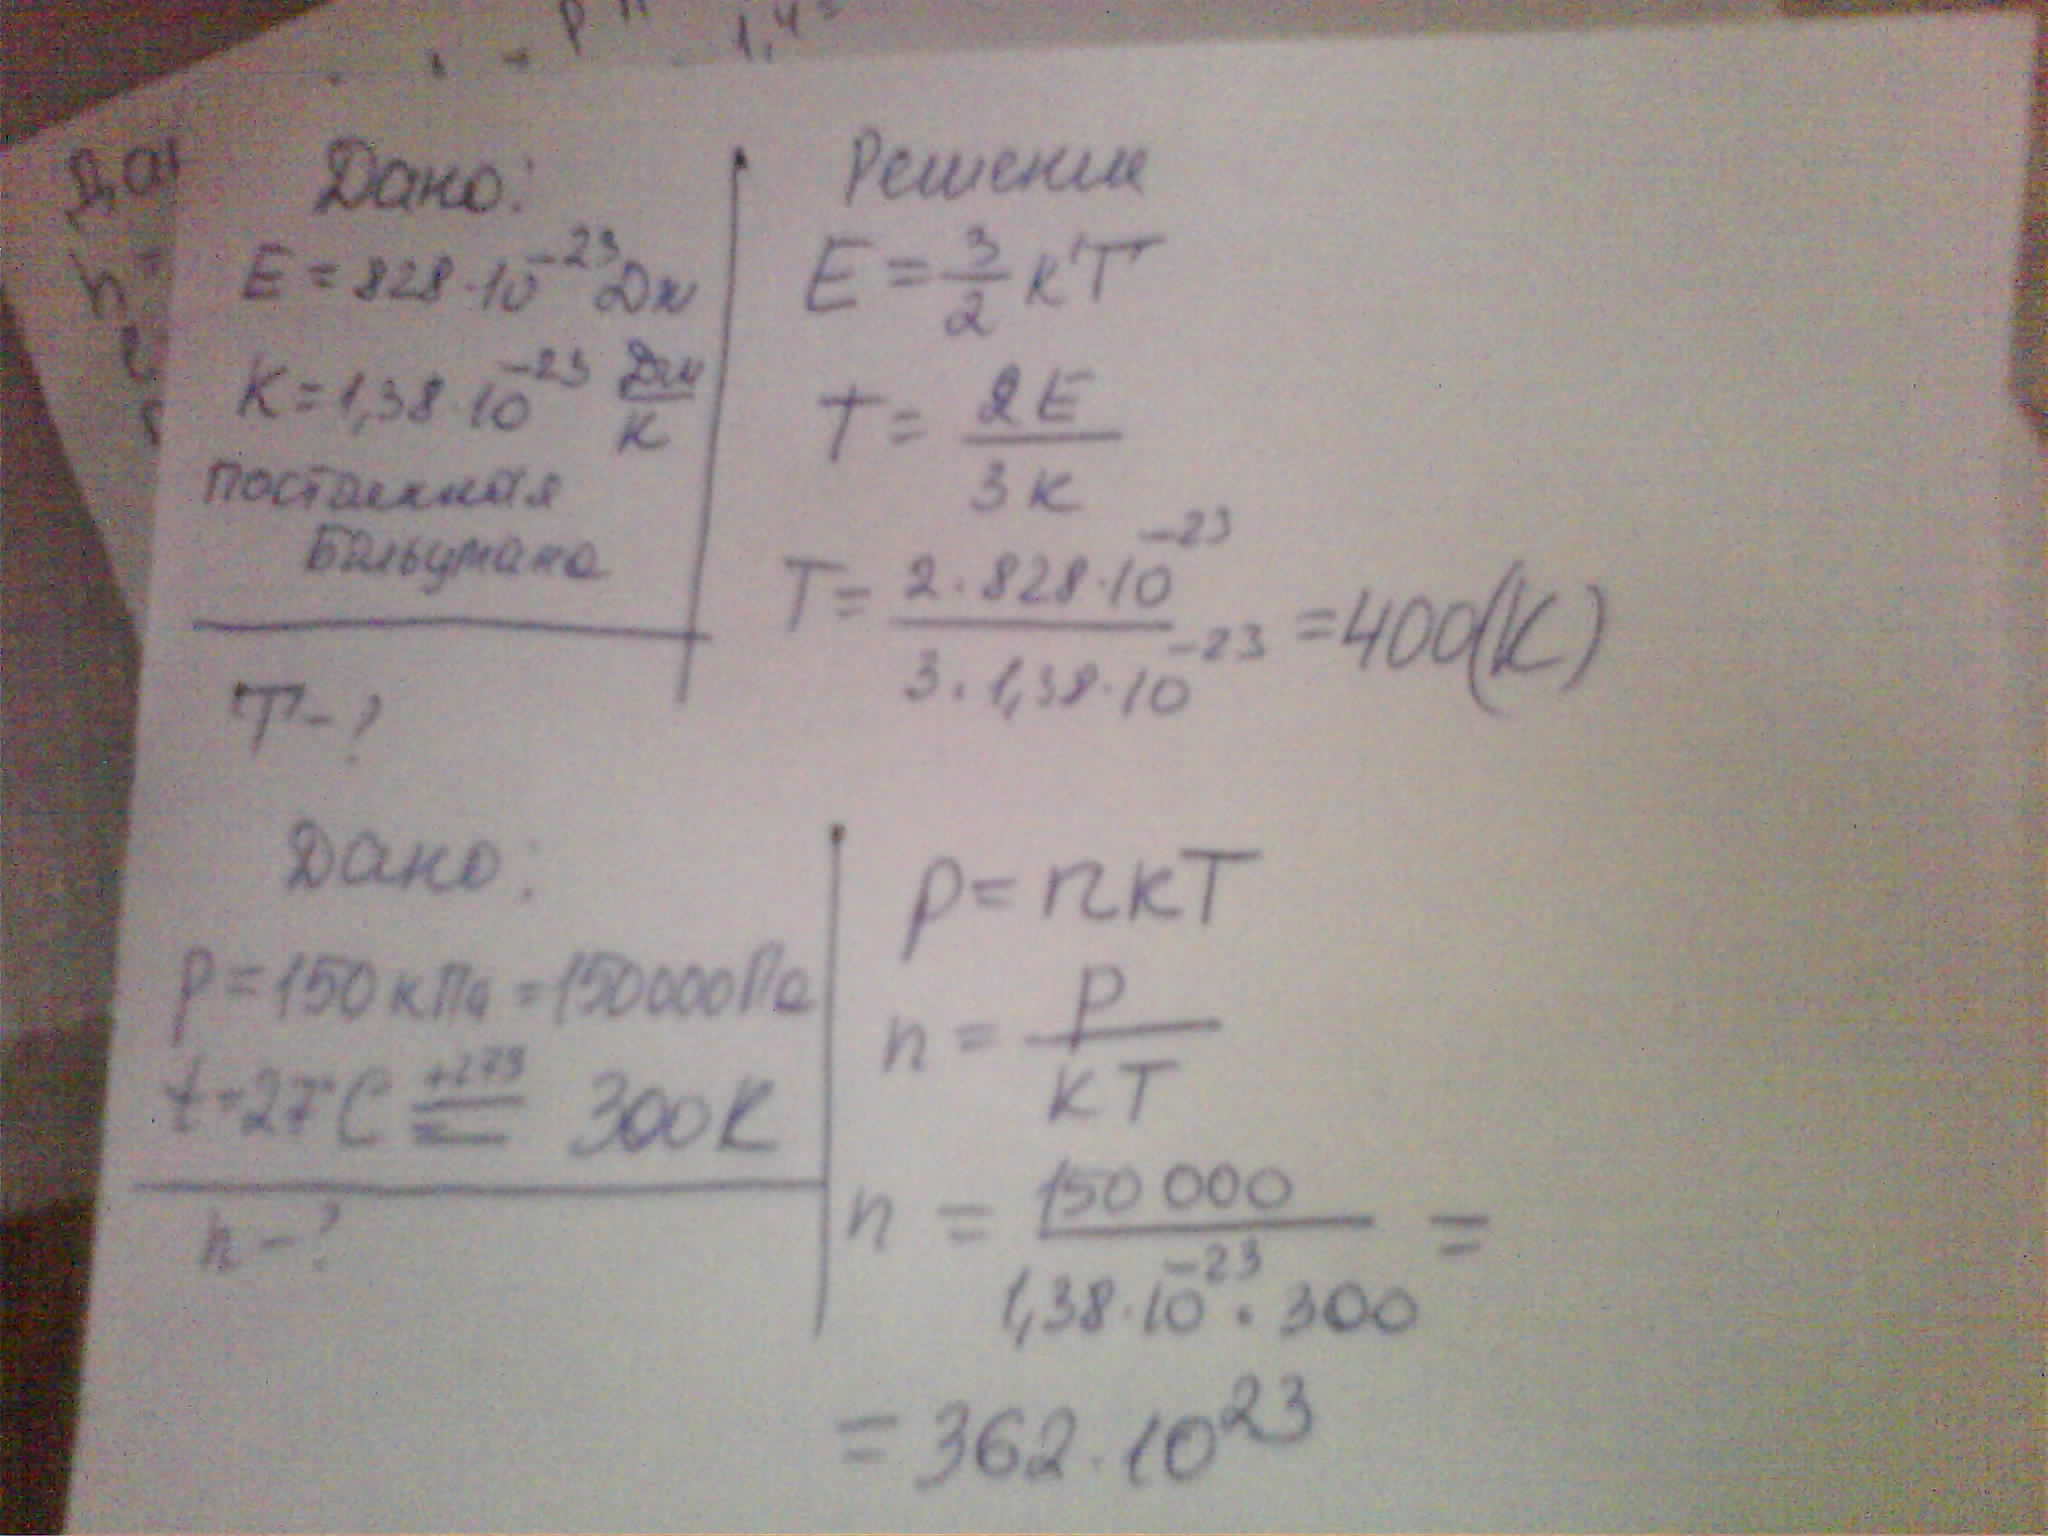 р
1,4
Дан
Дано:
E = 828 · 10⁻²³ Дж
K = 1,38 · 10⁻²³ Дж/К
постоянная
Больцмана
T - ?
Решение
E = 3/2 кT
T = 2E / 3к
T = 2 · 828 · 10⁻²³ / 3 · 1,38 · 10⁻²³ = 400 (К)
Дано:
p = 150 кПа = 150000 Па
t = 27°C +273 = 300 К
n - ?
p = nкT
n = p / кT
n = 150 000 / 1,38 · 10⁻²³ · 300 =
= 362 · 10²³